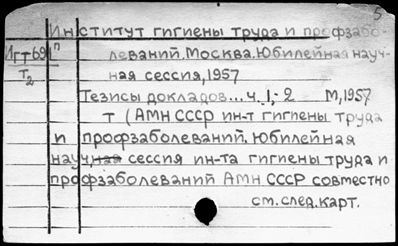 5
Институт гигиены труда и профзабо-
Игт691п леваний. Москва. Юбилейная науч-
т2 ная сессия, 1957
Тезисы докладов... ч. 1,-2 М, 1957
т (АМН СССР ин-т гигиены труда
и профзаболеваний. Юбилейная
науч,ная сессия ин-та гигиены труда и
профзаболеваний АМН СССР совместно
см. след. карт.